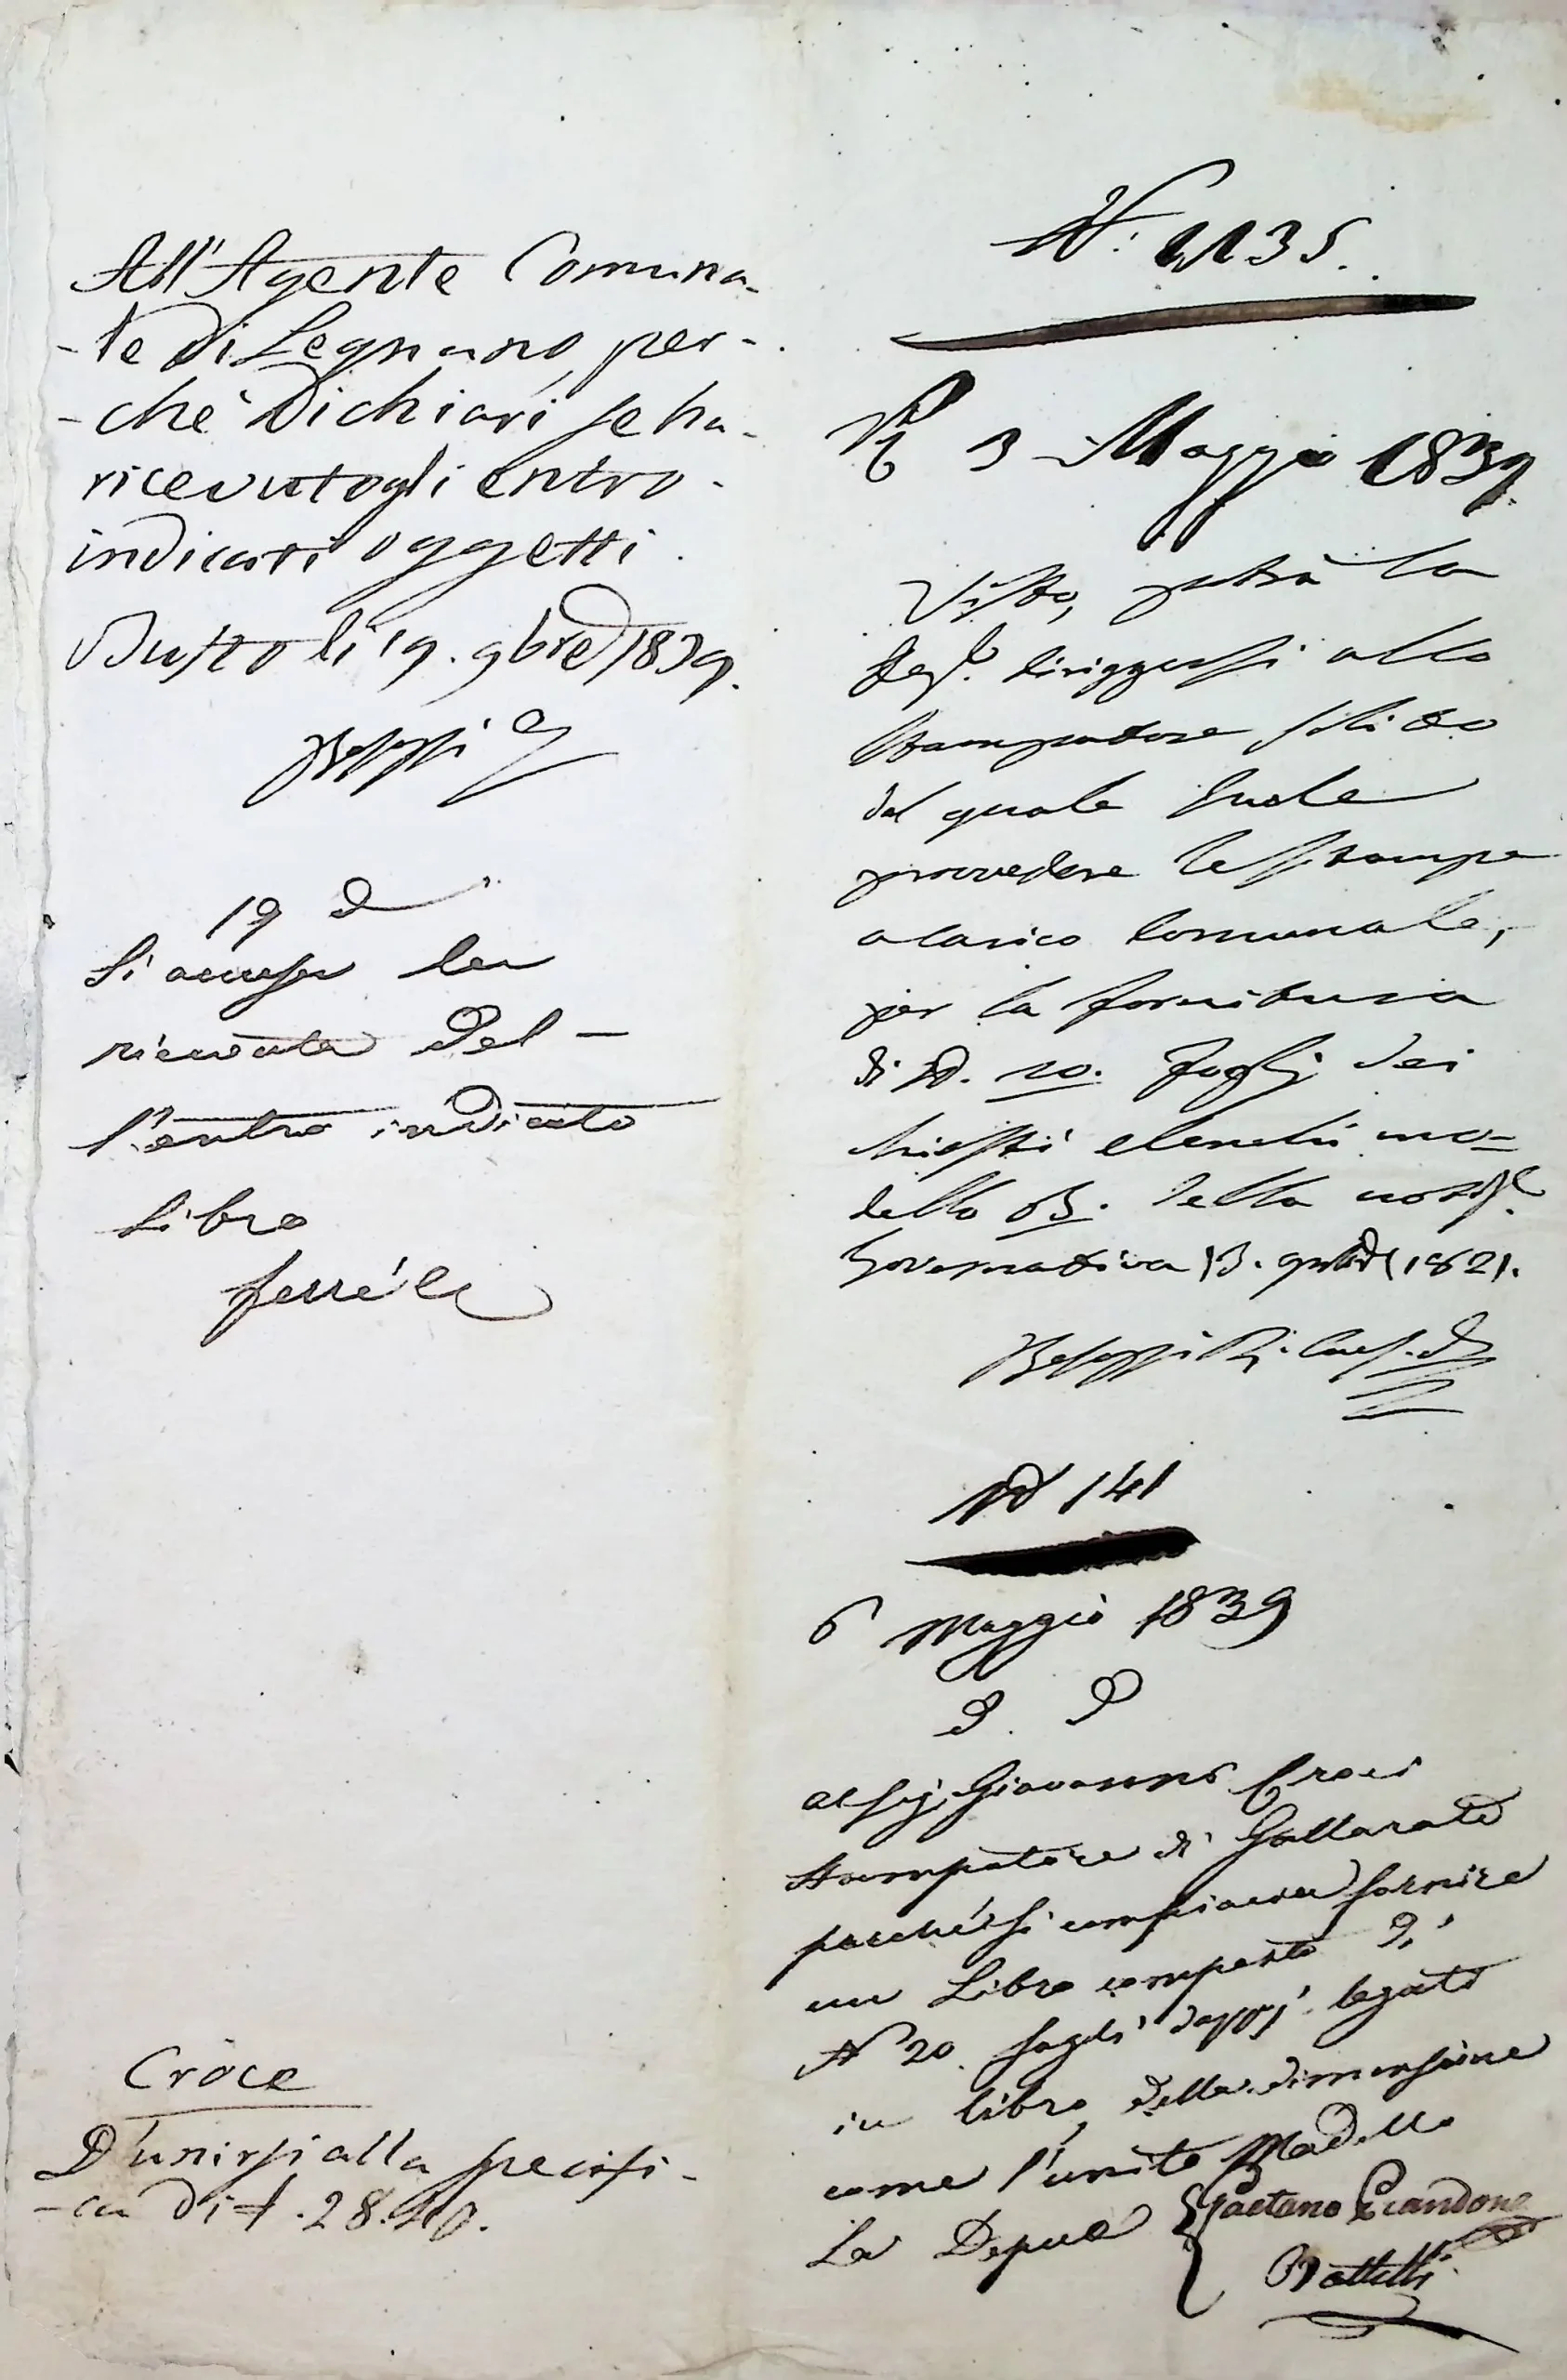 All'Agente Comuna-
-le di Legnano, per-
-chè dichiari se ha
ricevuto gli entro
indicati oggetti.
Busto li 19. 9bre 1839.
Besozzi
19 d
Si accusa la
ricevuta del-
l'entro indicato
Libro
Ferrè
Croce
D'unirsi alla specifi-
-ca di £. 28.
N. 1135.
3 Maggio 1839
Visto, potrà la
Dep.e dirigersi allo
Stampatore solito
dal quale suole
provvedere le stampe
a carico Comunale,
per la fornitura
di N. 20. fogli dei
chiesti elenchi mo=
dello B. della notif.e
Governativa 13. 1821.
Besozzi R. Canc.
N 141
6 Maggio 1839
al Sig. Giovanni Croci
Stampatore di Gallarate
perchè si compiaccia fornire
un Libro composto di
N 20 fogli doppj legati
in libro, della dimensione
come l'unito Modello
La Deput.e
Gaetano Prandone
Battelli